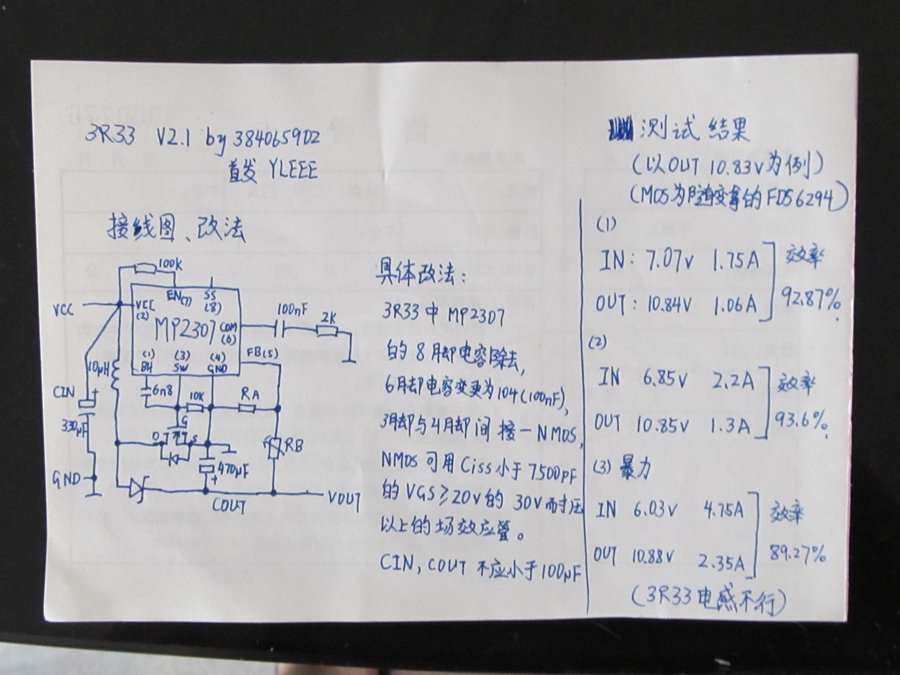 3R33 V2.1 by 384065902
首发 YLEEE
接线图、改法
100K
VCC
VCC
(2)
EN(7)
SS
(8)
MP2307
COM
(6)
100nF
2K
FB(5)
(1)
BH
(3)
SW
(4)
GND
10μH
CIN
+
330μF
6n8
10K
RA
G
D
S
RB
470μF
+
GND
COUT
VOUT
具体改法:
3R33中MP2307
的8脚电容除去,
6脚电容变更为104(100nF),
3脚与4脚间接一NMOS,
NMOS可用Ciss小于7500pF
的VGS≥20V的30V耐压
以上的场效应管。
CIN, COUT 不应小于100μF
测试结果
(以OUT 10.83V为例)
(MOS为随变拿的FDS6294)
(1)
IN: 7.07V 1.75A
OUT: 10.84V 1.06A
效率
92.87%
(2)
IN 6.85V 2.2A
OUT 10.85V 1.3A
效率
93.6%
(3) 暴力
IN 6.03V 4.75A
OUT 10.88V 2.35A
效率
89.27%
(3R33电感不行)